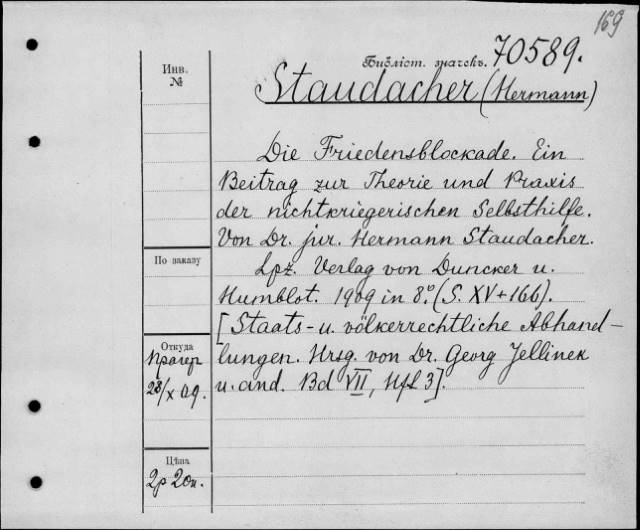 169
Библіот. значекъ. 70589.
Инв.
№
Staudacher (Hermann)
Die Friedensblockade. Ein
Beitrag zur Theorie und Praxis
der nichtkriegerischen Selbsthilfe.
Von Dr. jur. Hermann Staudacher.
По заказу
Lpz. Verlag von Duncker u.
Humblot. 1909 in 8.° (S. XV+166).
[Staats- u. völkerrechtliche Abhand-
Откуда
Прагер
lungen. Hrsg. von Dr. Georg Jellinek
28/X 09.
u. and. Bd VII, Hft 3].
Цѣна
2р 20к.